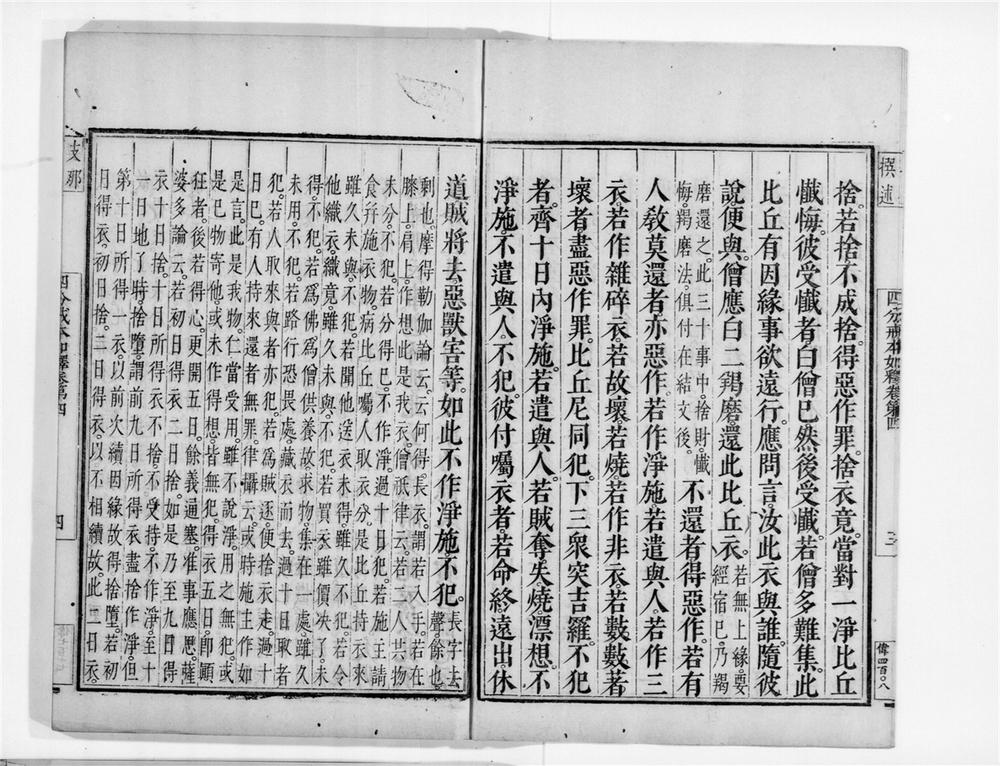 撰述
四分戒本如釋卷第四
三
偉四百〇八
捨。若捨。不成捨。得惡作罪。捨衣竟。當對一淨比丘
懺悔。彼受懺者白僧已。然後受懺。若僧多難集。此
比丘有因緣事欲遠行。應問言。汝此衣與誰。隨彼
說便與。僧應白二羯磨還此比丘衣。若無上緣。要
經宿已。乃羯
磨還之。此三十事中。捨財。懺
悔。羯磨法。俱付在結文後。不還者。得惡作。若有
人教莫還者。亦惡作。若作淨施。若遣與人。若作三
衣。若作雜碎衣。若故壞。若燒。若作非衣。若數數著
壞者。盡惡作罪。比丘尼同犯。下三眾突吉羅。不犯
者。齊十日內淨施。若遣與人。若賊奪。失。燒。漂想。不
淨施。不遣與人。不犯。彼付囑衣者。若命終。遠出。休
道。賊將去。惡獸害等。如此不作淨施不犯。長字去
聲。餘也。
剩也。摩得勒伽論云。云何得長衣。謂若入手。若在
膝上。肩上。作想此是我衣。僧祇律云。若二人共物
未分。不犯。若分得已。不作淨。過十日犯。若施主請
食并施衣物。病比丘囑人取衣分。是比丘持衣來
雖久未與。不犯。若聞他送衣未得。雖久不犯。若令
他織衣。織竟雖久未與。不犯。若買衣。雖價決了。未
得。不犯。若為佛為僧供養故求物。集在一處。雖久
未用。不犯。若路行恐畏處。藏衣而去。過十日取者
犯。若人取來與者亦犯。若為賊逐。便捨衣走。過十
日已。有人持來還者無罪。律攝云。或時施主作如
是言。此是我物。仁當受用。雖不說淨。用之無犯。或
是己物寄他。或未作得想。皆無犯。得衣五日。即顛
狂者。後若得心。更開五日。餘義遍塞。准事應思。薩
婆多論云。若初日得衣。二日捨。如是乃至九日得
衣。十日捨。十日所得衣。不捨。不受持。不作淨。至十
一日地了時。捨墮。謂前九日所得衣盡捨作淨。但
第十日所得一衣。以前次續因緣故得捨墮。若初
日得衣。初日捨。二日得衣。以不相續故。此二日衣。
支那
四分戒本如釋卷第四
四